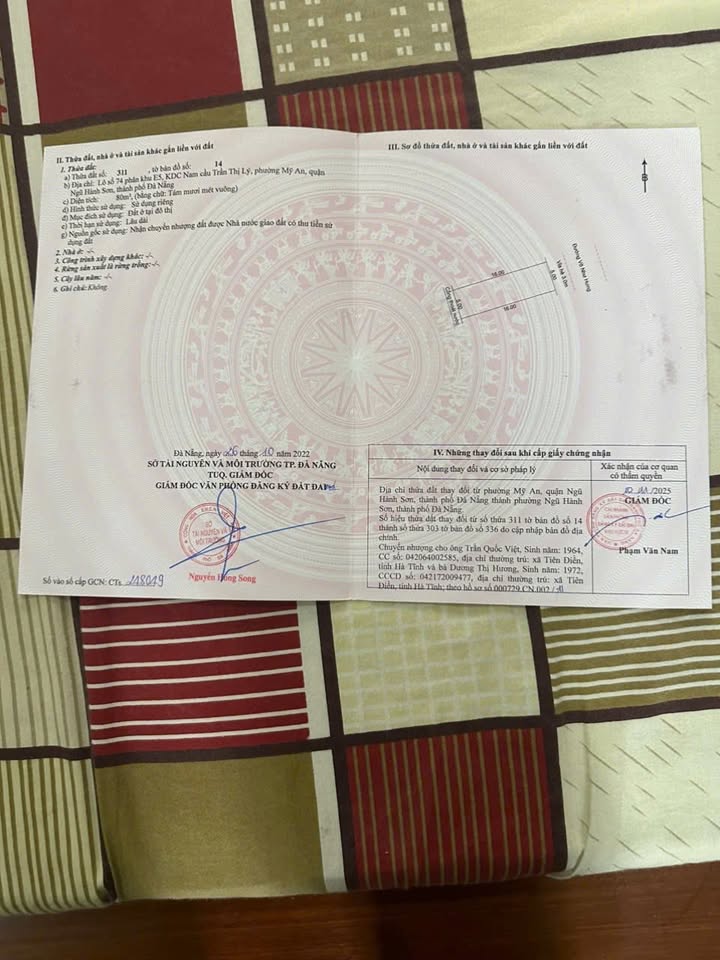 II. Thửa đất, nhà ở và tài sản khác gắn liền với đất
1. Thửa đất:
a) Thửa đất số: 311 , tờ bản đồ số: 14
b) Địa chỉ: Lô số 74 phân khu E5, KDC Nam cầu Trần Thị Lý, phường Mỹ An, quận
Ngũ Hành Sơn, thành phố Đà Nẵng
c) Diện tích: 80m², (bằng chữ: Tám mươi mét vuông)
d) Hình thức sử dụng: Sử dụng riêng
đ) Mục đích sử dụng: Đất ở tại đô thị
e) Thời hạn sử dụng: Lâu dài
g) Nguồn gốc sử dụng: Nhận chuyển nhượng đất được Nhà nước giao đất có thu tiền sử
dụng đất
2. Nhà ở: -/-
3. Công trình xây dựng khác: -/-
4. Rừng sản xuất là rừng trồng: -/-
5. Cây lâu năm: -/-
6. Ghi chú: Không.
Đà Nẵng, ngày 26 tháng 10 năm 2022
SỞ TÀI NGUYÊN VÀ MÔI TRƯỜNG TP. ĐÀ NẴNG
TUQ. GIÁM ĐỐC
GIÁM ĐỐC VĂN PHÒNG ĐĂNG KÝ ĐẤT ĐAI
SỞ
TÀI NGUYÊN VÀ
MÔI TRƯỜNG
Nguyễn Hồng Song
Số vào sổ cấp GCN: CTs
III. Sơ đồ thửa đất, nhà ở và tài sản khác gắn liền với đất
B
Đường Võ Như Hưng
Vỉa hè 3.0m
16.00
5.00
16.00
5.00
Cống thoát nước
IV. Những thay đổi sau khi cấp giấy chứng nhận
Nội dung thay đổi và cơ sở pháp lý
Xác nhận của cơ quan
có thẩm quyền
Địa chỉ thửa đất thay đổi từ phường Mỹ An, quận Ngũ
Hành Sơn, thành phố Đà Nẵng thành phường Ngũ Hành
Sơn, thành phố Đà Nẵng.
Số hiệu thửa đất thay đổi từ số thửa 311 tờ bản đồ số 14
thành số thửa 303 tờ bản đồ số 336 do cập nhập bản đồ địa
chính.
Chuyển nhượng cho ông Trần Quốc Việt, Sinh năm: 1964,
CC số: 042064002585, địa chỉ thường trú: xã Tiên Điền,
tỉnh Hà Tĩnh và bà Dương Thị Hương, Sinh năm: 1972,
CCCD số: 042172009477, địa chỉ thường trú: xã Tiên
Điền, tỉnh Hà Tĩnh; theo hồ sơ số 000729.CN.002
/2025
GIÁM ĐỐC
Phạm Văn Nam